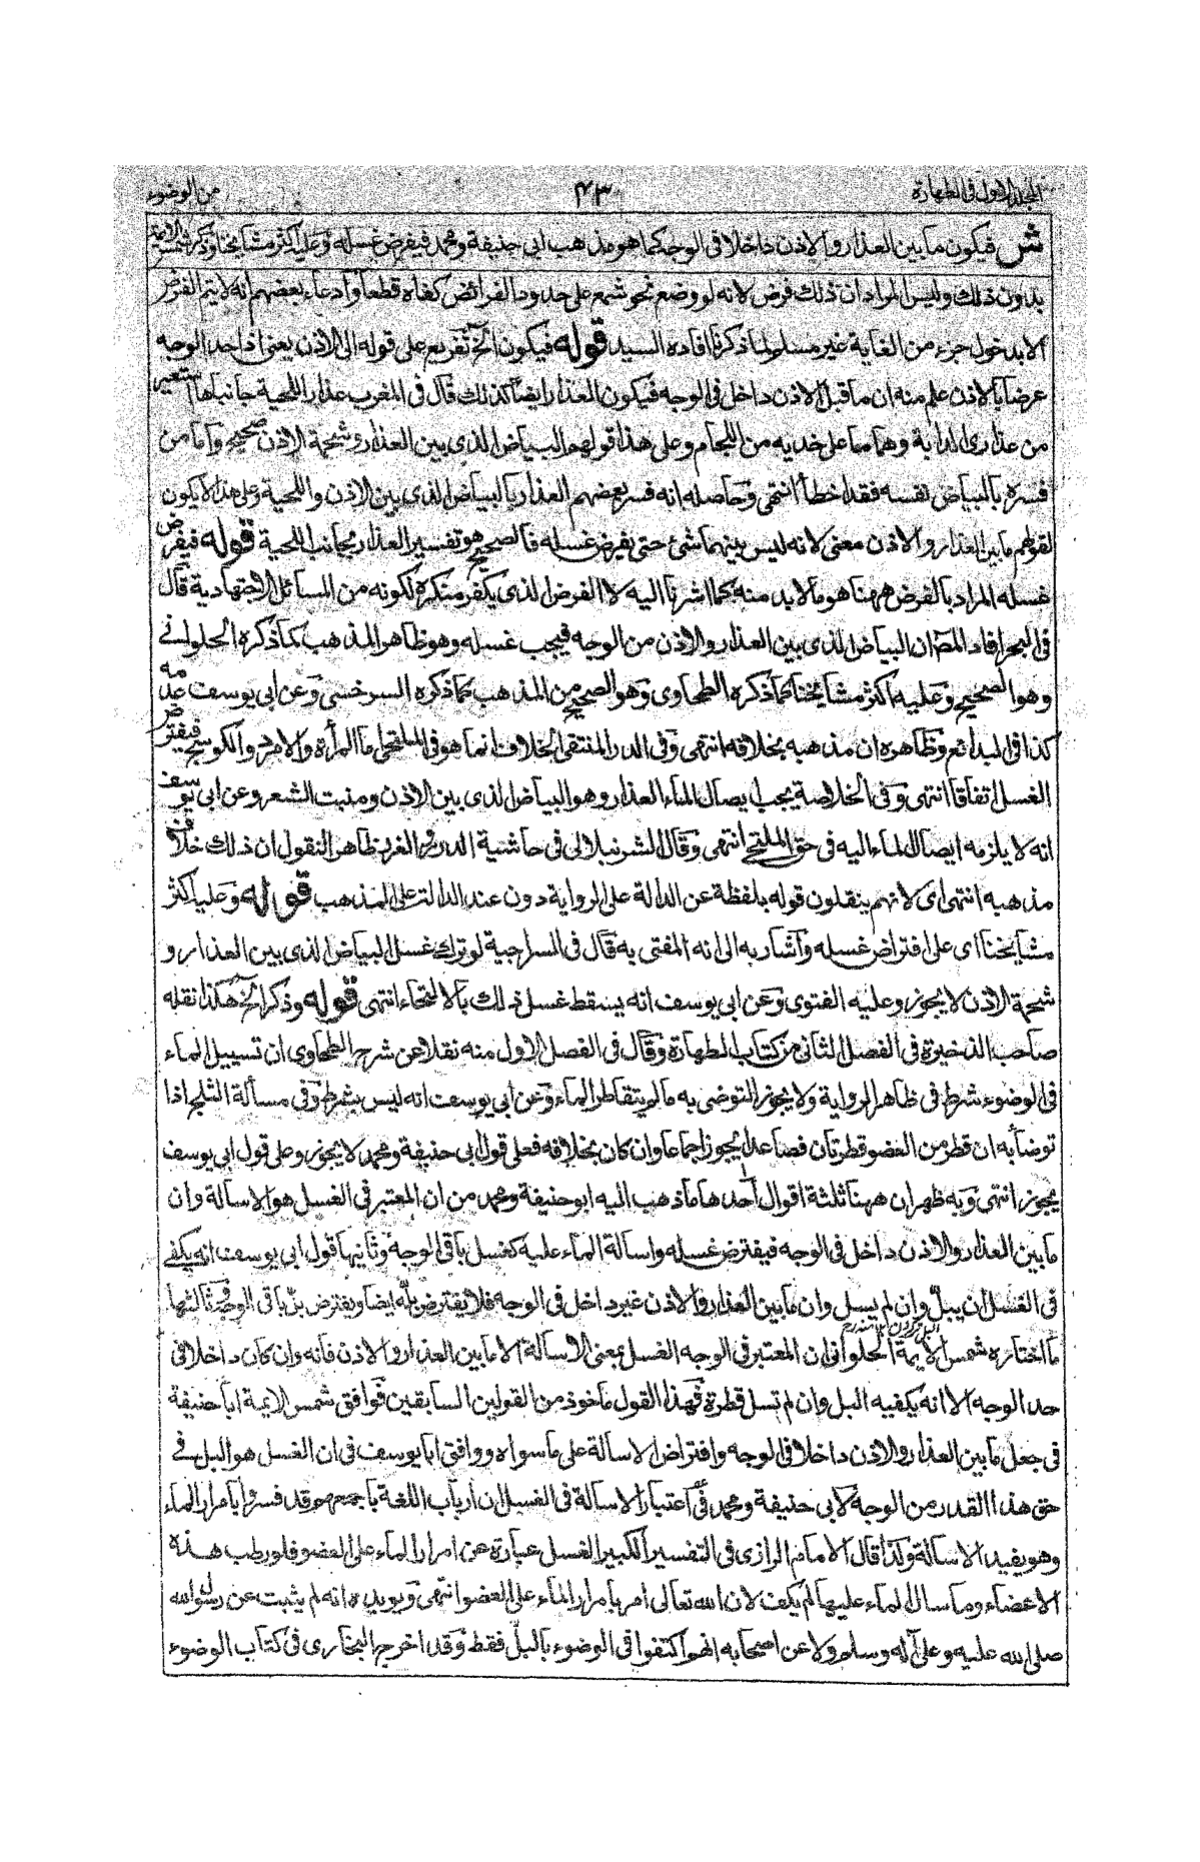 المجلد الاول فى الطهارة ٤٣ من الوضوء
ش فيكون ما بين العذار والاذن داخلا فى الوجه كما هو مذهب ابى حنيفة ومحمد فيفرض غسله وعليه اكثر مشايخنا وذكر شمس الائمة
بدون ذلك وليس المراد ان ذلك فرض لانه لو وضع نحو شمع على حدود الفرائض كفاه قطعا وادعاء بعضهم انه لا يتم الفرض
الا بدخول جزء من الغاية غير مسلم لما ذكرنا افاده السيد قوله فيكون الخ تفريع على قوله الى الاذن يعنى اذا حد الوجه
عرضا بالاذن علم منه ان ما قبل الاذن داخل فى الوجه فيكون العذار ايضا كذلك قال فى المغرب عذار اللحية جانباها استعير
من عذارى الدابة وهما ما على خديه من اللجام وعلى هذا قولهم البياض الذى بين العذار وشحمة الاذن صحيح واما من
فسره بالبياض نفسه فقد اخطأ انتهى وحاصله انه فسر بعضهم العذار بالبياض الذى بين الاذن واللحية وعلى هذا لا يكون
لقولهم ما بين العذار والاذن معنى لانه ليس بينهما شئ حتى يفرض غسله فالصحيح هو تفسير العذار بجانب اللحية قوله فيفرض
غسله المراد بالفرض ههنا هو ما لا بد منه كما اشرنا اليه لا الفرض الذى يكفر منكره لكونه من المسائل الاجتهادية قال
فى البحر افاد المصـ ان البياض الذى بين العذار والاذن من الوجه فيجب غسله وهو ظاهر المذهب كما ذكره الحلوانى
وهو الصحيح وعليه اكثر مشايخنا كما ذكره الطحاوى وهو الصحيح من المذهب كما ذكره السرخسى وعن ابى يوسف عدمه
كذا فى البدائع وظاهره ان مذهبه بخلافه انتهى وفى الدر المنتقى الخلاف انما هو فى الملتحى اما المرأة والامرد والكوسج فيفترض
الغسل اتفاقا انتهى وفى الخلاصة يجب ايصال الماء العذار وهو البياض الذى بين الاذن ومنبت الشعر وعن ابى يوسف
انه لا يلزمه ايصال الماء اليه فى حق الملتحى انتهى وقال الشرنبلالى فى حاشية الدرر والغرر ظاهر النقول ان ذلك خلاف
مذهبه انتهى اى لانهم ينقلون قوله بلفظة عن الدالة على الرواية دون عند الدالة على المذهب قوله وعليه اكثر
مشايخنا اى على افتراض غسله واشار به الى انه المفتى به قال فى السراجية لو ترك غسل البياض الذى بين العذار و
شحمة الاذن لا يجوز وعليه الفتوى وعن ابى يوسف انه يسقط غسل ذلك بالالتحاء انتهى قوله وذكر الخ هكذا نقله
صاحب الذخيرة فى الفصل الثانى من كتاب الطهارة وقال فى الفصل الاول منه نقلا عن شرح الطحاوى ان تسييل الماء
فى الوضوء شرط فى ظاهر الرواية ولا يجوز التوضى به ما لم يتقاطر الماء وعن ابى يوسف انه ليس بشرط وفى مسألة الثلج اذا
توضأ به ان قطر من العضو قطرتان فصاعدا يجوز اجماعا وان كان بخلافه فعلى قول ابى حنيفة ومحمد لا يجوز وعلى قول ابى يوسف
يجوز انتهى وبه ظهر ان ههنا ثلثة اقوال احدها ما ذهب اليه ابو حنيفة ومحمد من ان المعتبر فى الغسل هو الاسالة وان
ما بين العذار والاذن داخل فى الوجه فيفترض غسله واسالة الماء عليه كغسل باقى الوجه وثانيها قول ابى يوسف انه يكفى
فى الغسل ان يبل وان لم يسل وان ما بين العذار والاذن غير داخل فى الوجه فلا يفترض بله ايضا ويفترض بل باقى الوجه وثالثها
ما اختاره شمس الائمة الحلوانى ان المعتبر فى الوجه الغسل بمعنى الاسالة الا ما بين العذار والاذن فانه وان كان داخلا فى
حد الوجه الا انه يكفيه البل وان لم تسل قطرة فهذا القول ماخوذ من القولين السابقين فوافق شمس الائمة ابا حنيفة
فى جعل ما بين العذار والاذن داخلا فى الوجه وافتراض الاسالة على ما سواه ووافق ابا يوسف فى ان الغسل هو البل فى
حق هذا القدر من الوجه لابى حنيفة ومحمد فى اعتبار الاسالة فى الغسل ان ارباب اللغة باجمعهم قد فسروا بامرار الماء
وهو يفيد الاسالة وكذا قال الامام الرازى فى التفسير الكبير الغسل عبارة عن امرار الماء على العضو فلو رطب هذه
الاعضاء وما سال الماء عليها لم يكف لان الله تعالى امر بامرار الماء على العضو انتهى ويؤيده انه لم يثبت عن رسول الله
صلى الله عليه وعلى آله وسلم ولا عن اصحابه انهم اكتفوا فى الوضوء بالبل فقط وقد اخرج البخارى فى كتاب الوضوء